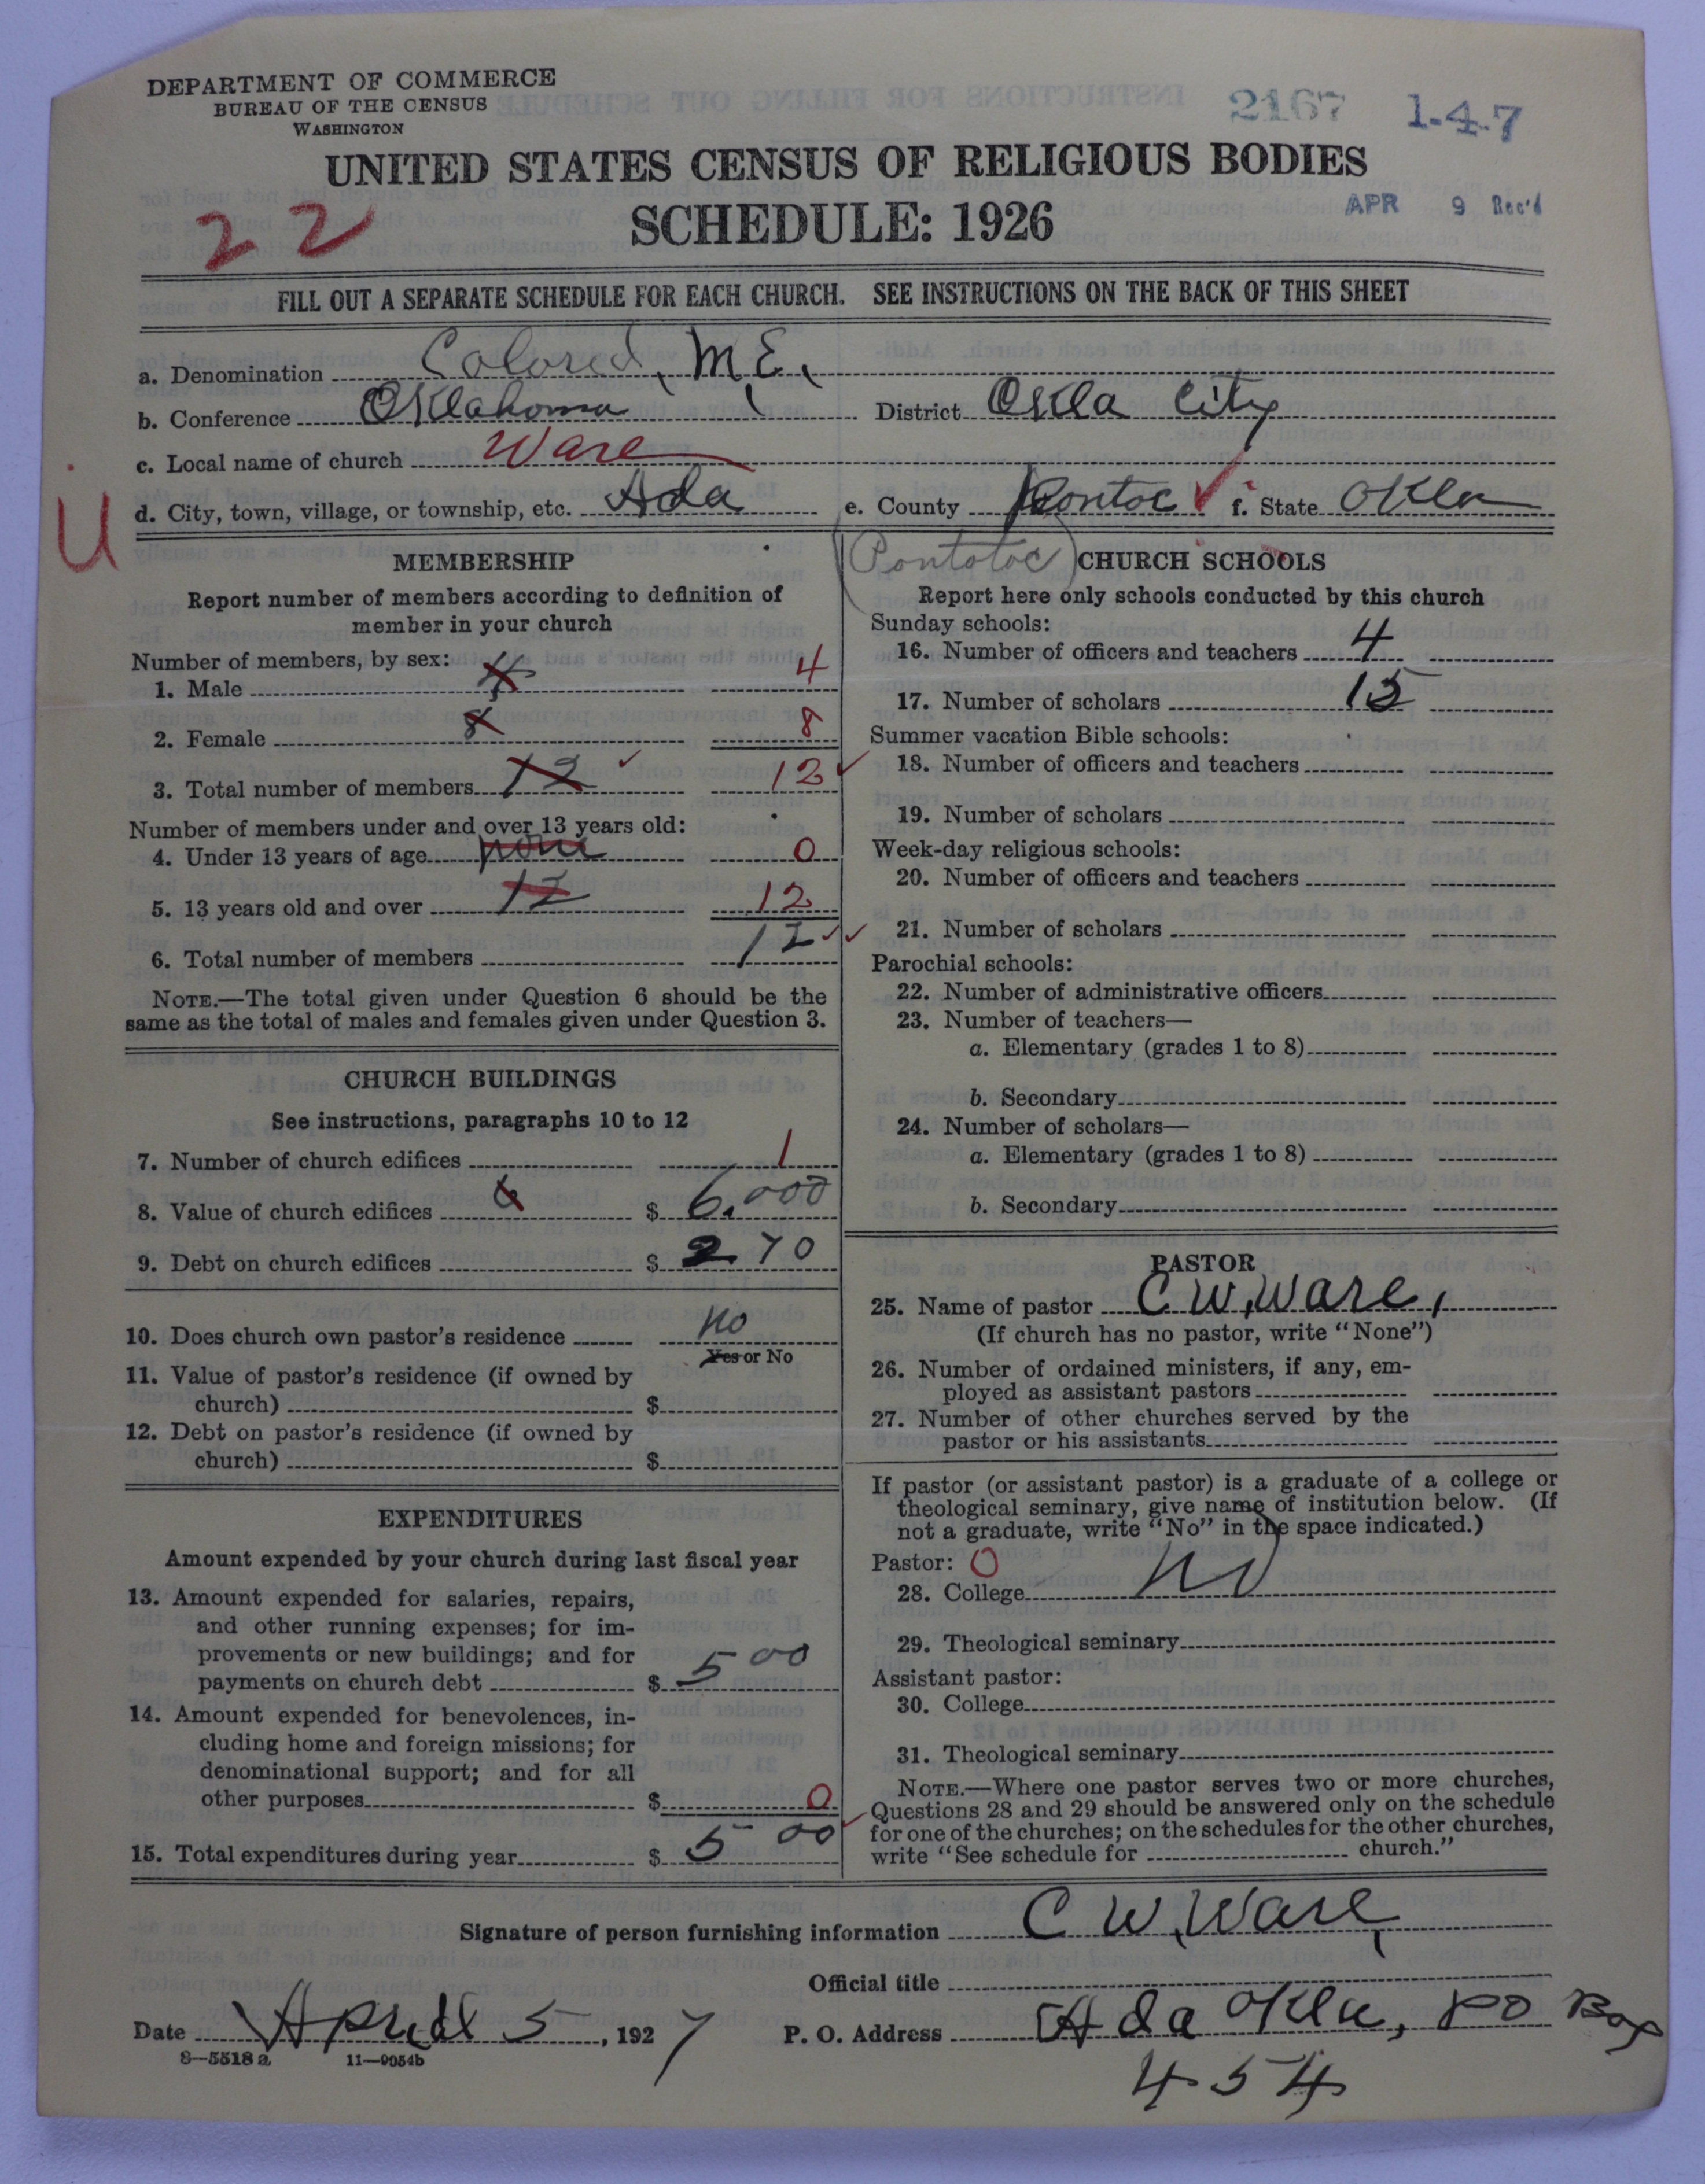 DEPARTMENT OF COMMERCE
BUREAU OF THE CENSUS
WASHINGTON
2167 1-4-7
UNITED STATES CENSUS OF RELIGIOUS BODIES
SCHEDULE: 1926
22
APR 9 Rec'd
FILL OUT A SEPARATE SCHEDULE FOR EACH CHURCH. SEE INSTRUCTIONS ON THE BACK OF THIS SHEET
a. Denomination Colored, M.E.
b. Conference Oklahoma District Okla City
c. Local name of church Ware
d. City, town, village, or township, etc. Ada e. County Pontoc ✓ f. State Okla
U
(Pontotoc)
MEMBERSHIP
Report number of members according to definition of
member in your church
Number of members, by sex:
1. Male 4 4
2. Female 8 8
3. Total number of members 12 ✓ 12 ✓
Number of members under and over 13 years old:
4. Under 13 years of age none 0
5. 13 years old and over 12 12
6. Total number of members 12 ✓✓
NOTE.—The total given under Question 6 should be the
same as the total of males and females given under Question 3.
CHURCH BUILDINGS
See instructions, paragraphs 10 to 12
7. Number of church edifices 1
8. Value of church edifices 6 $ 6.000
9. Debt on church edifices $ 270
10. Does church own pastor's residence No
Yes or No
11. Value of pastor's residence (if owned by
church) $
12. Debt on pastor's residence (if owned by
church) $
EXPENDITURES
Amount expended by your church during last fiscal year
13. Amount expended for salaries, repairs,
and other running expenses; for im-
provements or new buildings; and for
payments on church debt $ 500
14. Amount expended for benevolences, in-
cluding home and foreign missions; for
denominational support; and for all
other purposes $ 0
15. Total expenditures during year $ 500 ✓
CHURCH SCHOOLS
Report here only schools conducted by this church
Sunday schools:
16. Number of officers and teachers 4
17. Number of scholars 15
Summer vacation Bible schools:
18. Number of officers and teachers
19. Number of scholars
Week-day religious schools:
20. Number of officers and teachers
21. Number of scholars
Parochial schools:
22. Number of administrative officers
23. Number of teachers—
a. Elementary (grades 1 to 8)
b. Secondary
24. Number of scholars—
a. Elementary (grades 1 to 8)
b. Secondary
PASTOR
25. Name of pastor C W, Ware,
(If church has no pastor, write "None")
26. Number of ordained ministers, if any, em-
ployed as assistant pastors
27. Number of other churches served by the
pastor or his assistants
If pastor (or assistant pastor) is a graduate of a college or
theological seminary, give name of institution below. (If
not a graduate, write "No" in the space indicated.)
Pastor: 0
28. College No
29. Theological seminary
Assistant pastor:
30. College
31. Theological seminary
NOTE.—Where one pastor serves two or more churches,
Questions 28 and 29 should be answered only on the schedule
for one of the churches; on the schedules for the other churches,
write "See schedule for church."
Signature of person furnishing information C W, Ware,
Official title
Date April 5, 1927 P. O. Address Ada Okla, PO Box
454
8—5518 a 11—9054b